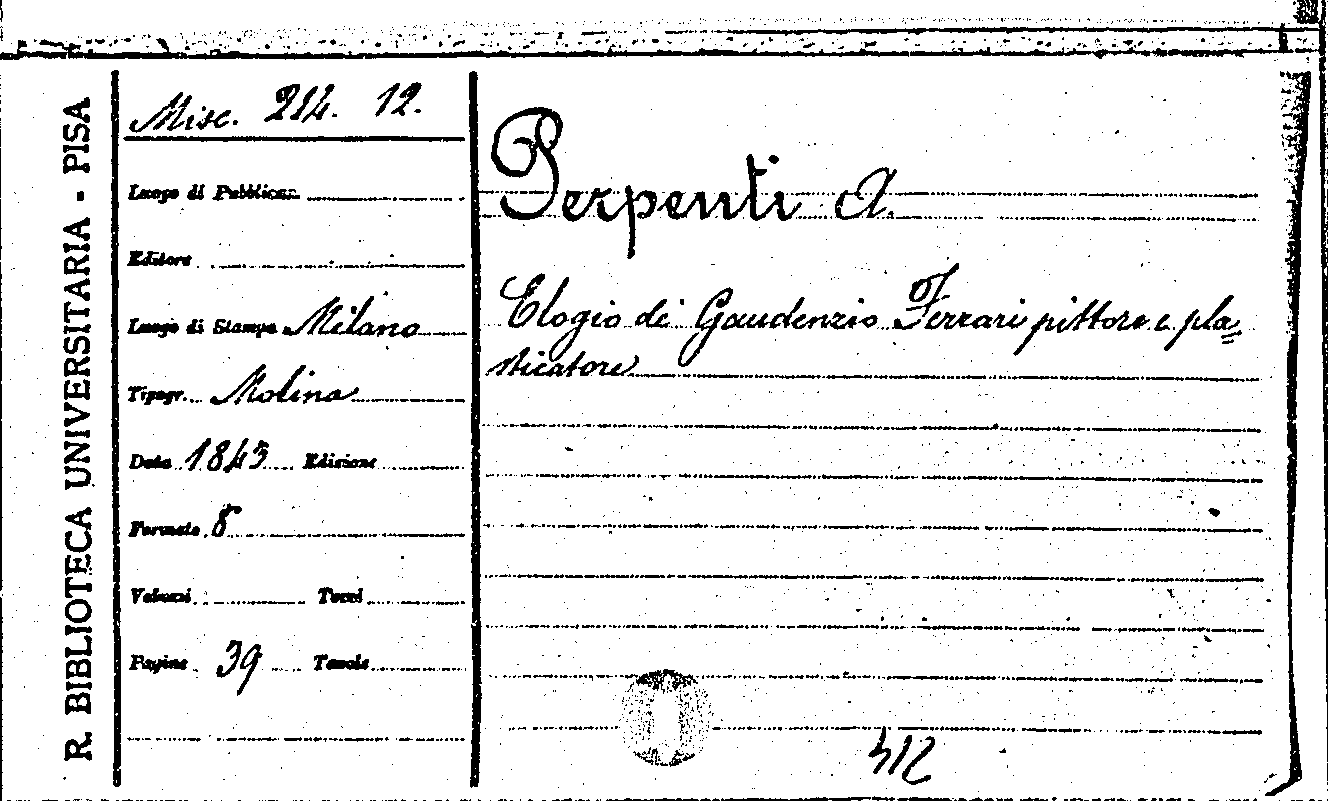 R. BIBLIOTECA UNIVERSITARIA - PISA
Misc. 214. 12.
Luogo di Pubblicaz.
Editore
Luogo di Stampa Milano
Tipogr. Molina
Data 1843 Edizione
Formato 8
Volumi Tomi
Pagine 39 Tavole
Perpenti A.
Elogio di Gaudenzio Ferrari pittore e pla=
sticatore
312